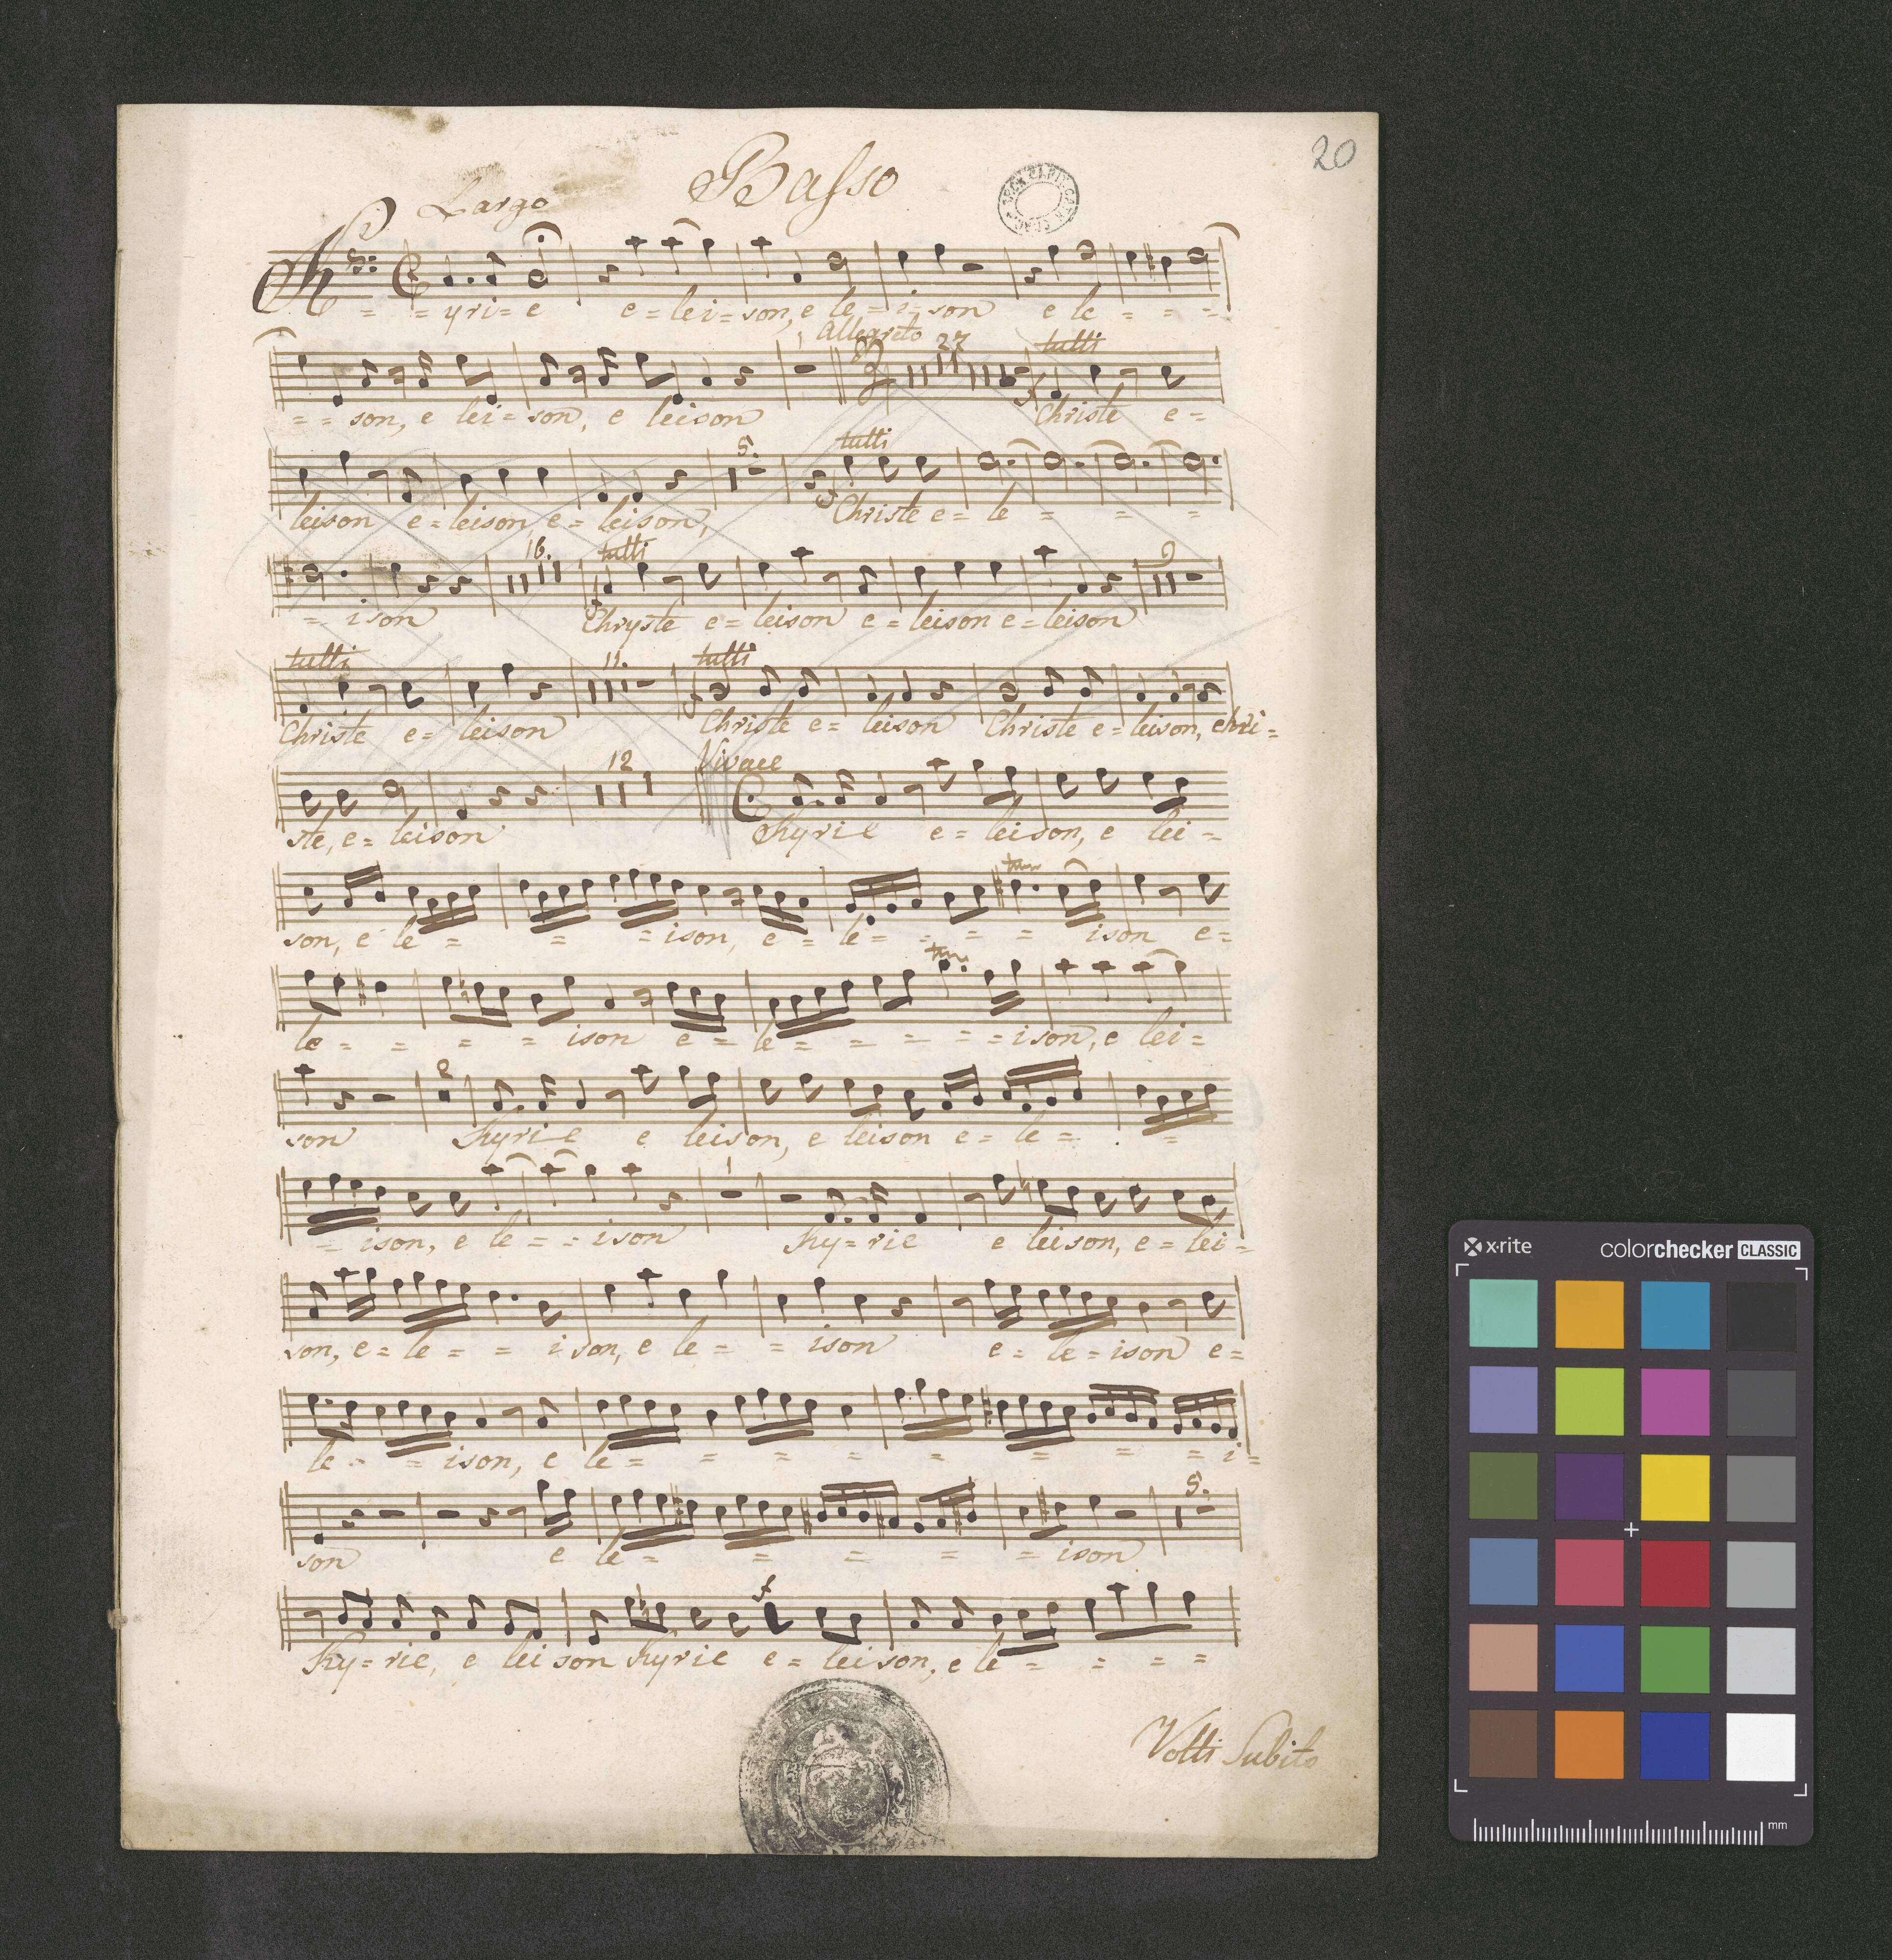 20
Basso
Largo
Kyrie e=lei=son, e le=i=son e le = = =
1 Allegreto 27 tutti
= = son, e lei=son, e leison Christe e=
5. tutti
leison e=leison, e=leison, Christe e=le = = =
16. tutti 9
= ison Chryste e=leison e=leison e=leison
tutti 11. tutti
Christe e=leison Christe e=leison Christe e=leison, chri=
12 Vivace
ste, e=leison Kyrie e=leison, e lei=
tr
son, e le = = =ison, e = le = = = = ison e=
tr
le = = = = ison e = le = = = =ison, e lei=
2
son Kyrie e leison, e leison e=le = =
1
= ison, e le = = ison Ky=rie e leison, e=lei=
son, e=le = = ison, e le = = ison e=le=ison e=
le = = ison, e le = = = = = = = =i=
5.
son e le = = = = = ison
f
Ky=rie, e leison Kyrie e=leison, e le = = = =
Volti Subito
x-rite colorchecker CLASSIC
mm